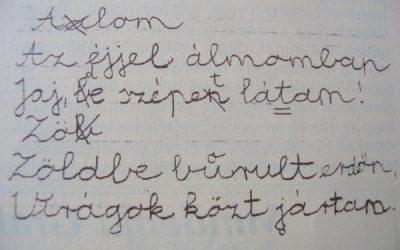 Alom
Az éjjel álmomban
Jaj, de szépet látam!
Zö
Zöldbe bűrult erdőn,
Virágok közt jártam.